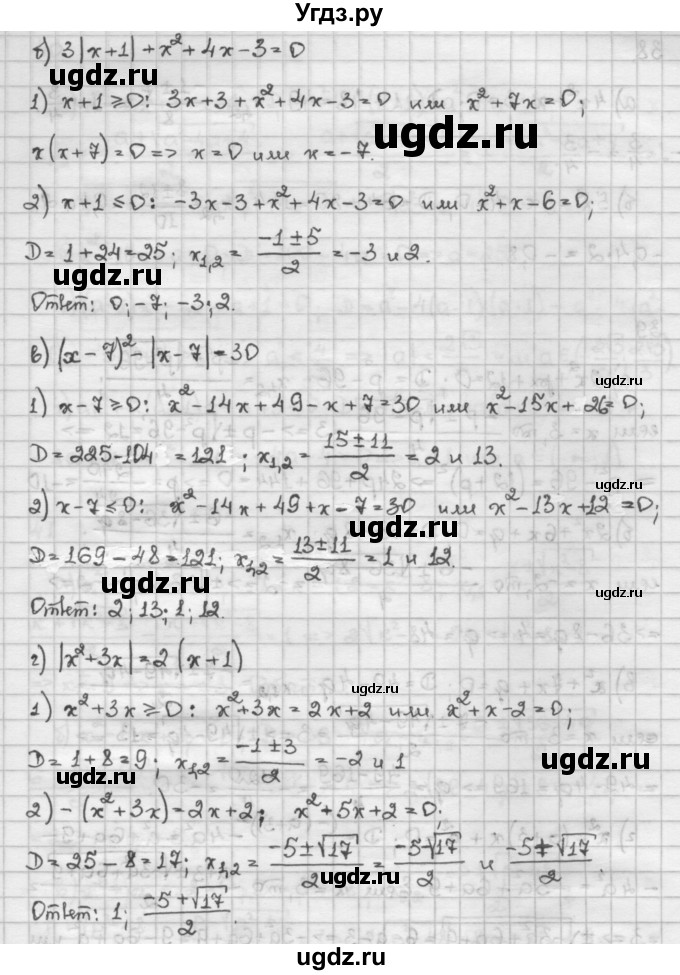 Угдз.ру
б) 3|x+1|+x²+4x-3=0
1) x+1≥0: 3x+3+x²+4x-3=0 или x²+7x=0;
ugdz.ru
x(x+7)=0=> x=0 или x=-7.
ugdz.ru
2) x+1≤0: -3x-3+x²+4x-3=0 или x²+x-6=0;
D=1+24=25; x₁,₂ = (-1±5)/2 = -3 и 2.
ugdz.ru
Ответ: 0; -7; -3; 2.
в) (x-7)²-|x-7|=30
ugdz.ru
1) x-7≥0: x²-14x+49-x+7=30 или x²-15x+26=0;
D=225-104=121; x₁,₂ = (15±11)/2 = 2 и 13.
ugdz.ru
2) x-7≤0: x²-14x+49+x-7=30 или x²-13x+12=0;
ugdz.ru
D=169-48=121; x₁,₂ = (13±11)/2 = 1 и 12.
ugdz.ru
ugdz.ru
Ответ: 2; 13; 1; 12.
г) |x²+3x|=2(x+1)
ugdz.ru
1) x²+3x≥0: x²+3x=2x+2 или x²+x-2=0;
D=1+8=9; x₁,₂ = (-1±3)/2 = -2 и 1
ugdz.ru
ugdz.ru
2) -(x²+3x)=2x+2; x²+5x+2=0.
D=25-8=17; x₁,₂ = (-5±√17)/2 = (-5-√17)/2 и (-5+√17)/2
ugdz.ru
Ответ: 1; (-5+√17)/2.
ugdz.ru
ugdz.ru